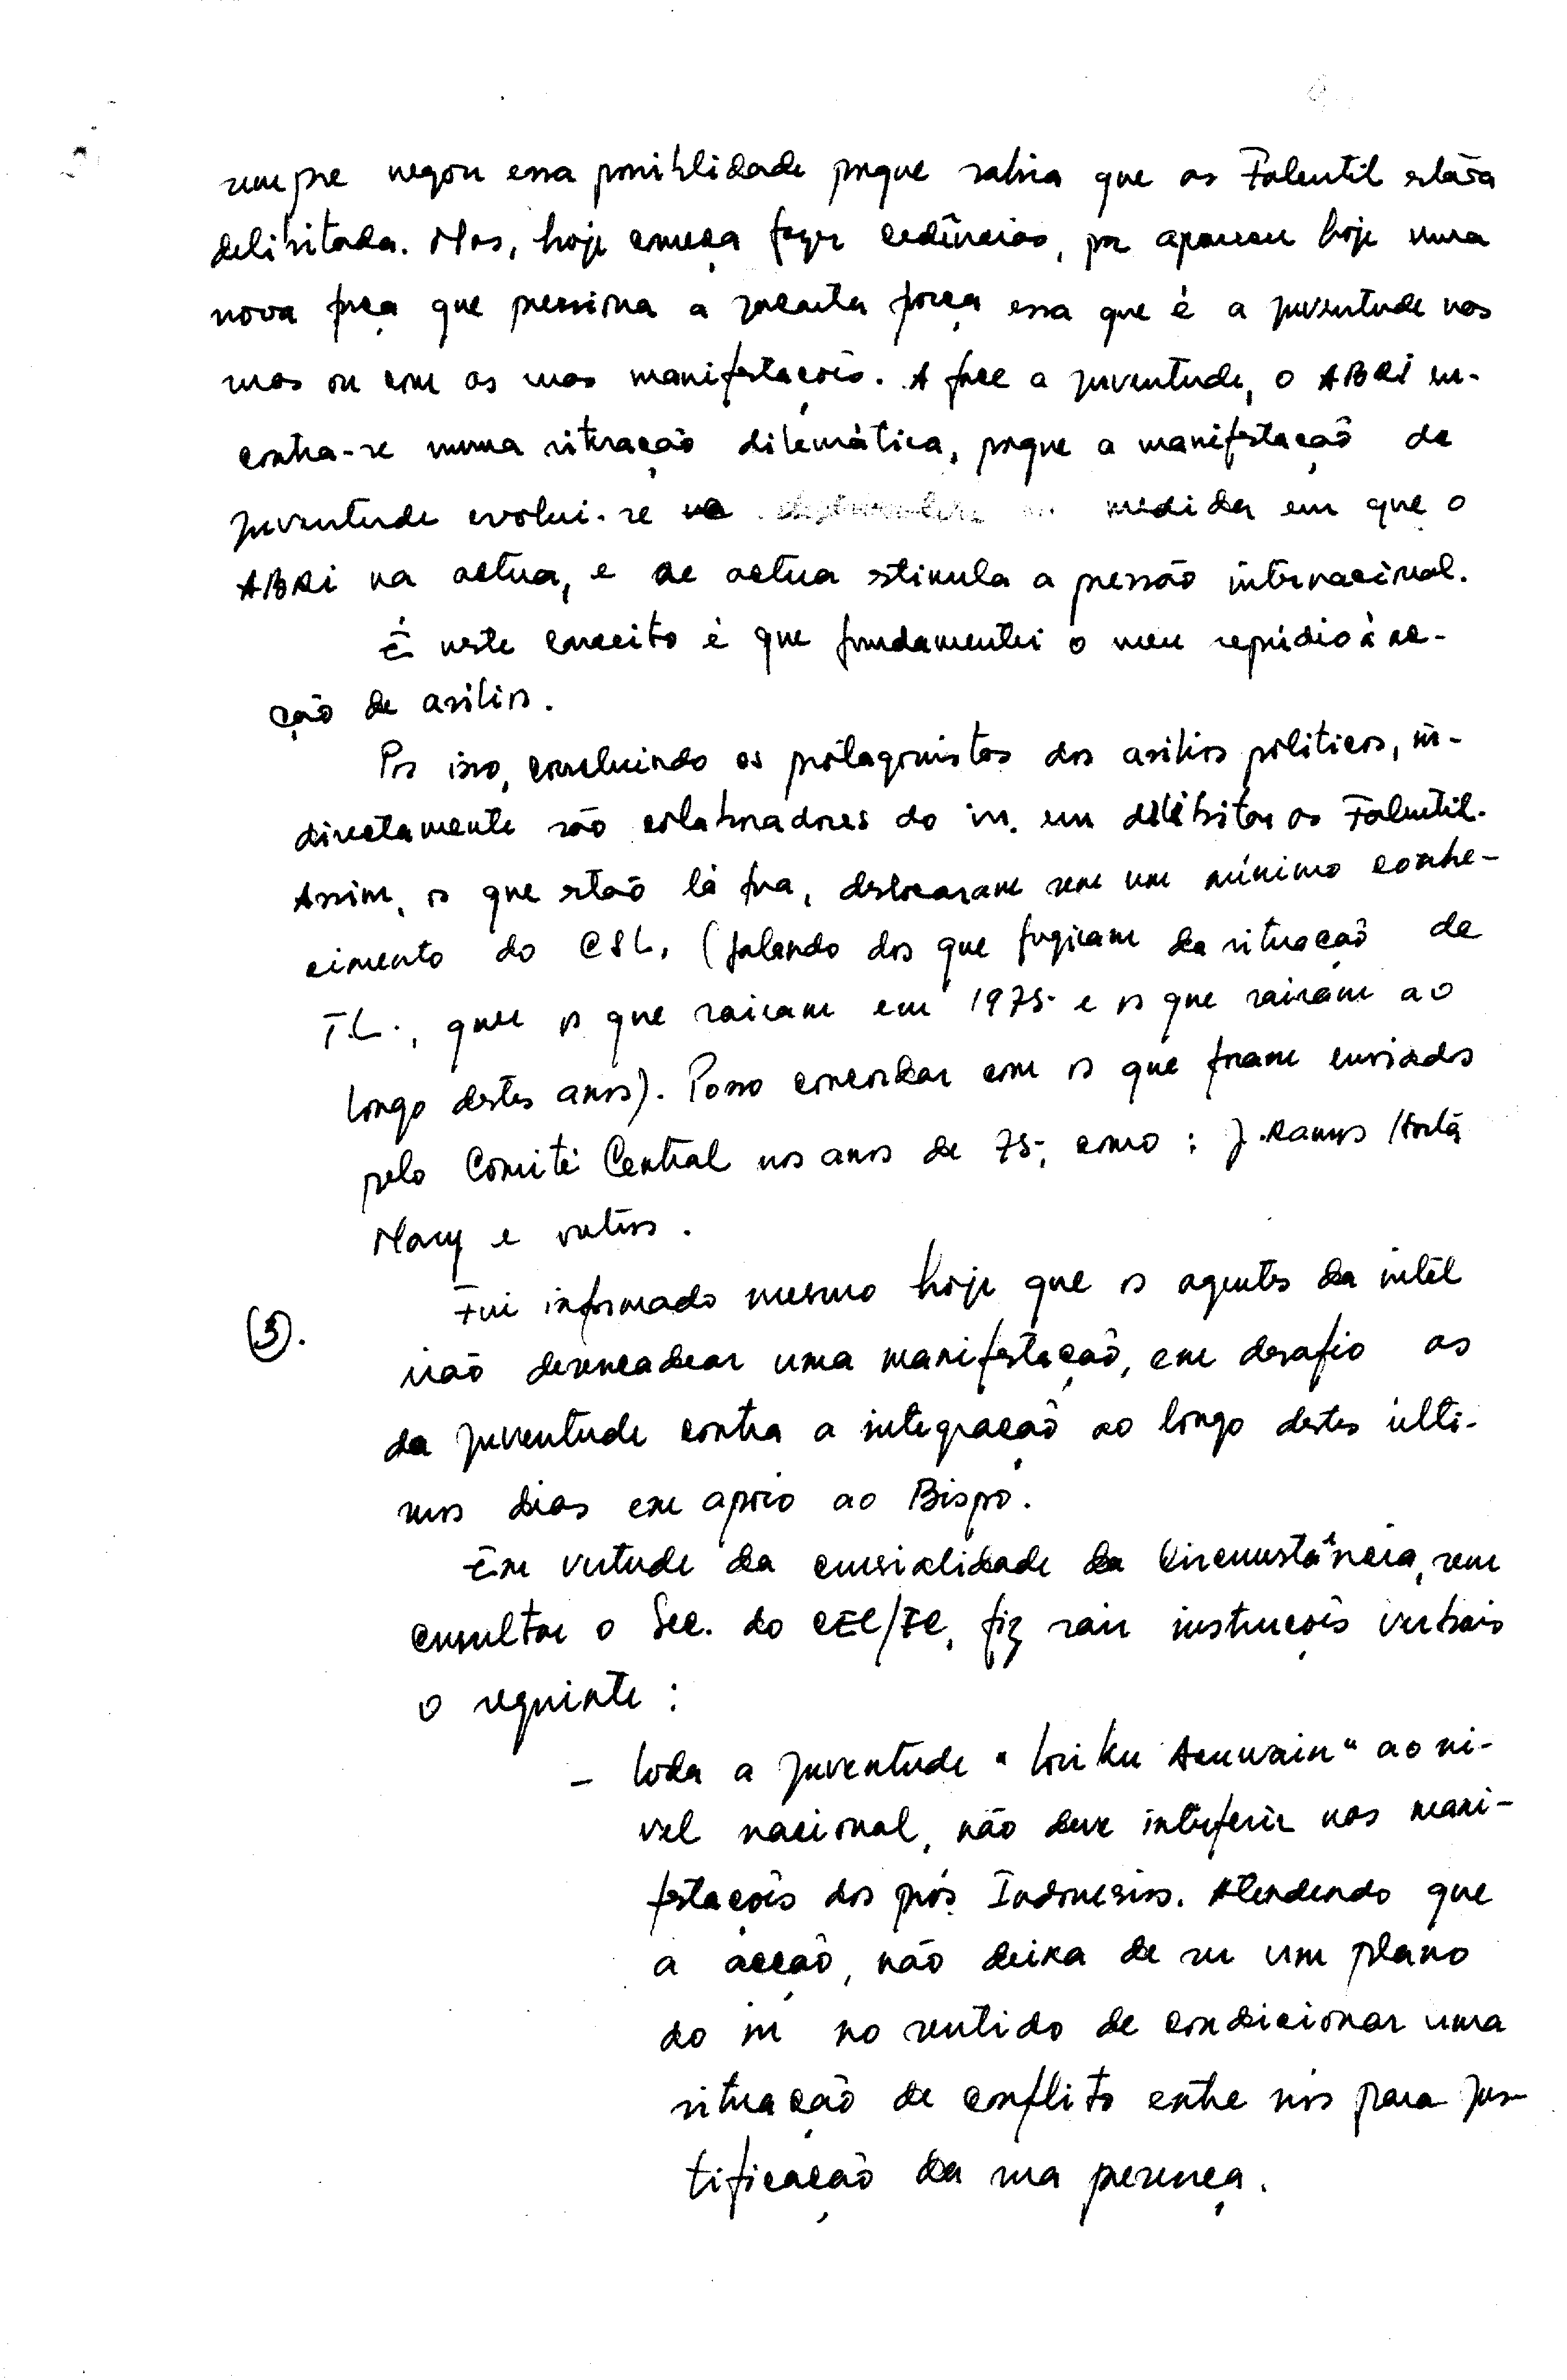 sempre negou essa possiblidade porque sabia que as Falentil estava
delibitada. Mas, hoje começa fazer cedências, por aparecer hoje uma
nova força que pressiona a Jacarta força essa que é a juventude nas
ruas ou com as suas manifestações. A face a juventude, o ABRI en-
contra-se numa situação dilemática, porque a manifestação da
juventude evolui-se na medida em que o
ABRI na actua, e se actua stimula a pressão internacional.
É neste conceito é que fundamentei o meu repúdio à ac-
ção de asilios.
Por isso, concluindo os prótagonistas dos asilios políticos, in-
directamente são colaboradores do in. em délibitar as Falentil.
Assim, os que stão lá fora, deslocaram sem um mínimo conhe-
cimento do CSL, (falando dos que fugiram da situação de
T.L., quer os que sairam em 1975 e os que sairam ao
longo destes anos). Posso concordar com os que foram enviados
pelo Comité Central nos anos de 75, como: J. Ramos Hortá
Mary e outros.
(5). Fui informado mesmo hoje que os agentes da intel
irão desencadear uma manifestação, em desafio as
da juventude contra a integração ao longo destes últi-
mos dias em apoio ao Bispo.
Em vertude da crusialidade da circunstância, sem
consultar o Sec. do CEL/FC, fiz sair instruções verbais
o seguinte:
- Toda a juventude "Loriku Aswain" ao ni-
vel nacional, não deve interferir nas mani-
festações dos prós Indonesios. Atendendo que
a acção, não deixa de ser um plano
do in no sentido de condicionar uma
situação de conflito entre nós para jus-
tificação da sua presença.